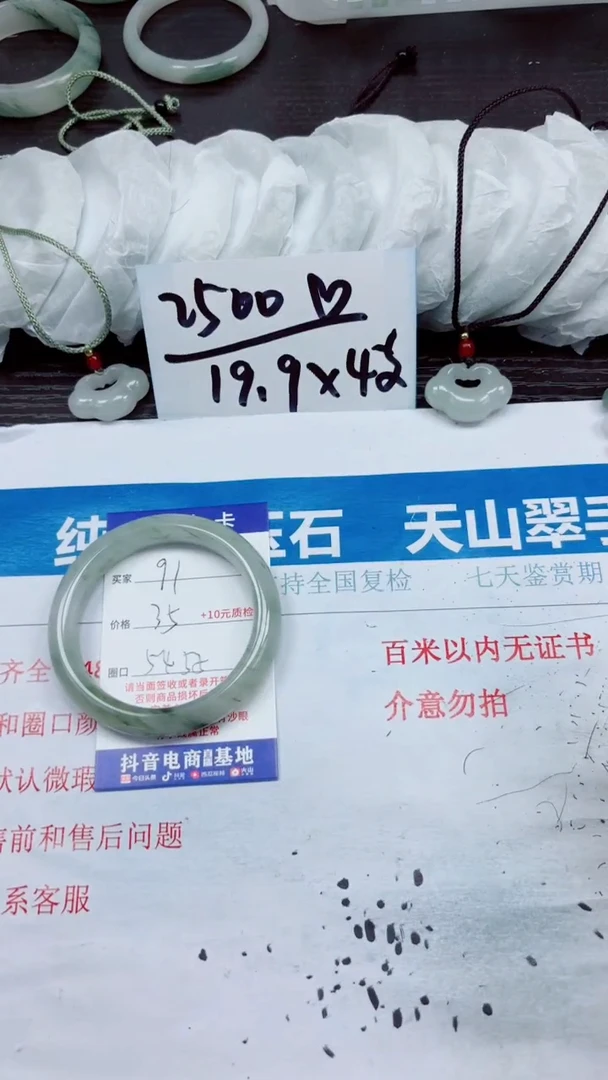 2500
19.9x4
卡
纯
玉石 天山翠手
买家 91
持全国复检 七天鉴赏期
价格 35 +10元质检
百米以内无证书
齐全
圈口 54
请当面签收或者录开
否则商品损坏后
介意勿拍
和圈口颜
沙眼
正常
抖音电商直播基地
今日头条 抖音 西瓜视频 火山
默认微瑕
售前和售后问题
系客服